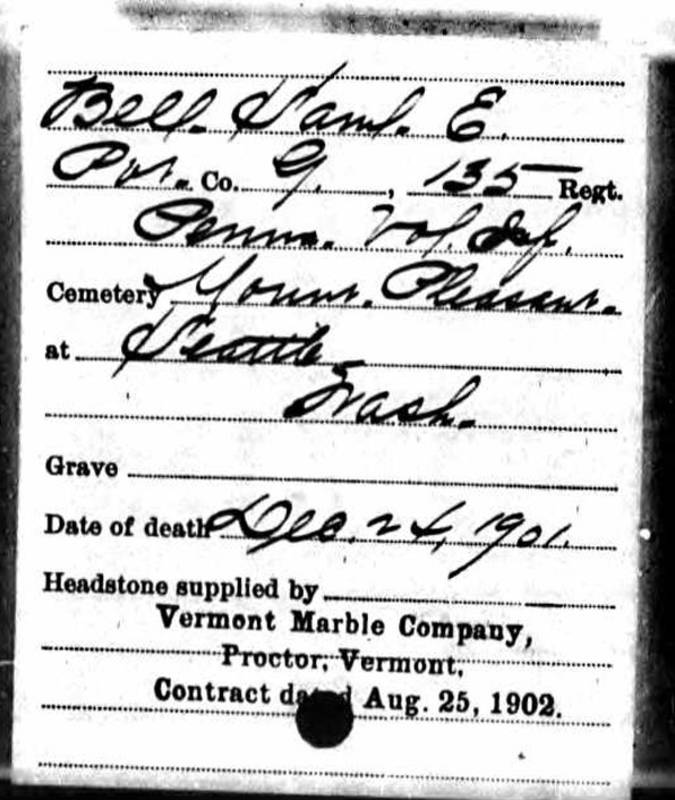 Bell. Saml. E.
Pvt. Co. G., 135 Regt.
Penna. Vol. Inf.
Cemetery Mount. Pleasant.
at Seattle
Wash.
Grave
Date of death Dec. 24, 1901.
Headstone supplied by
Vermont Marble Company,
Proctor, Vermont,
Contract dated Aug. 25, 1902.